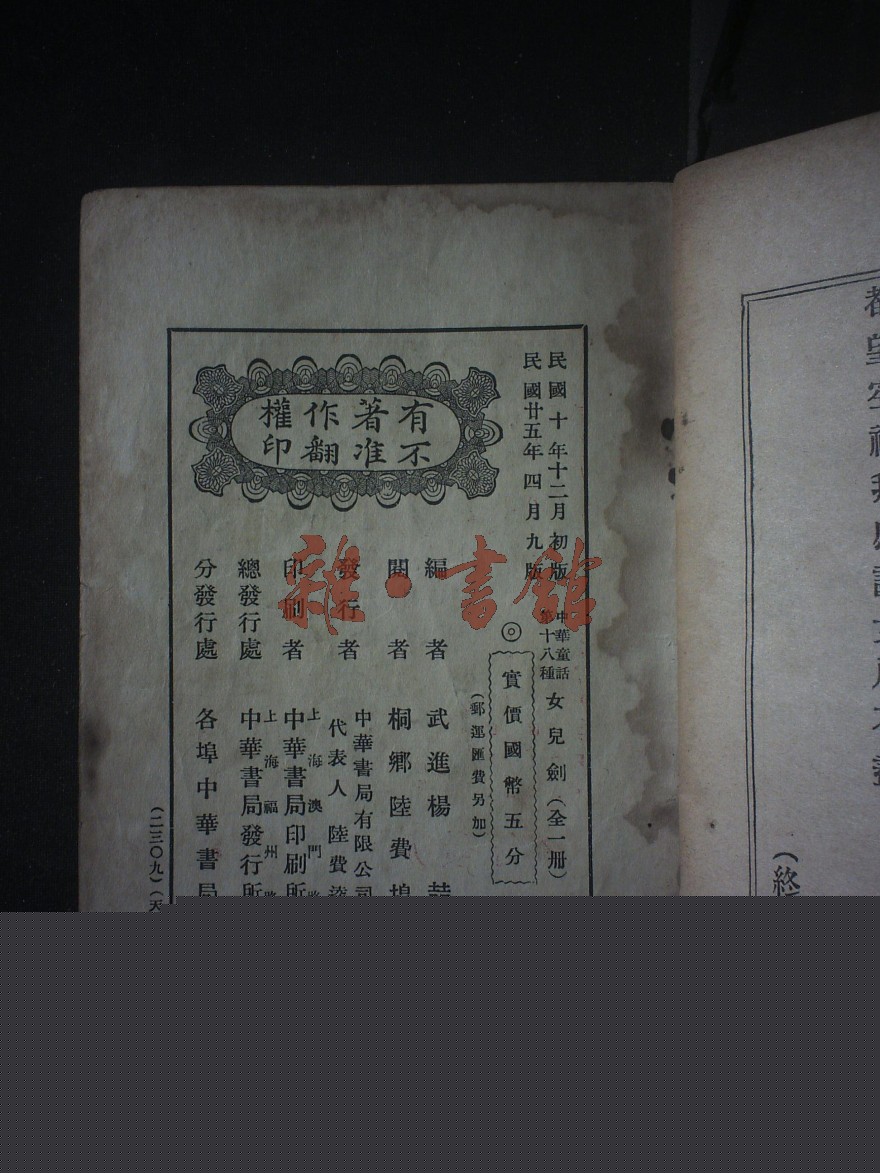 都望空禮拜
(終
民國十年十二月初版
民國廿五年四月九版
中華童話
第十八種
女兒劍(全一冊)
◎
實價國幣五分
(郵運匯費另加)
有著作權
不准翻印
編者 武進楊喆
閱者 桐鄉陸費
發行者 中華書局有限公司
代表人 陸費
印刷者 上海澳門
中華書局印刷所
總發行處 上海福州
中華書局發行所
分發行處 各埠中華書局
(二三〇九)(天
雜·書館